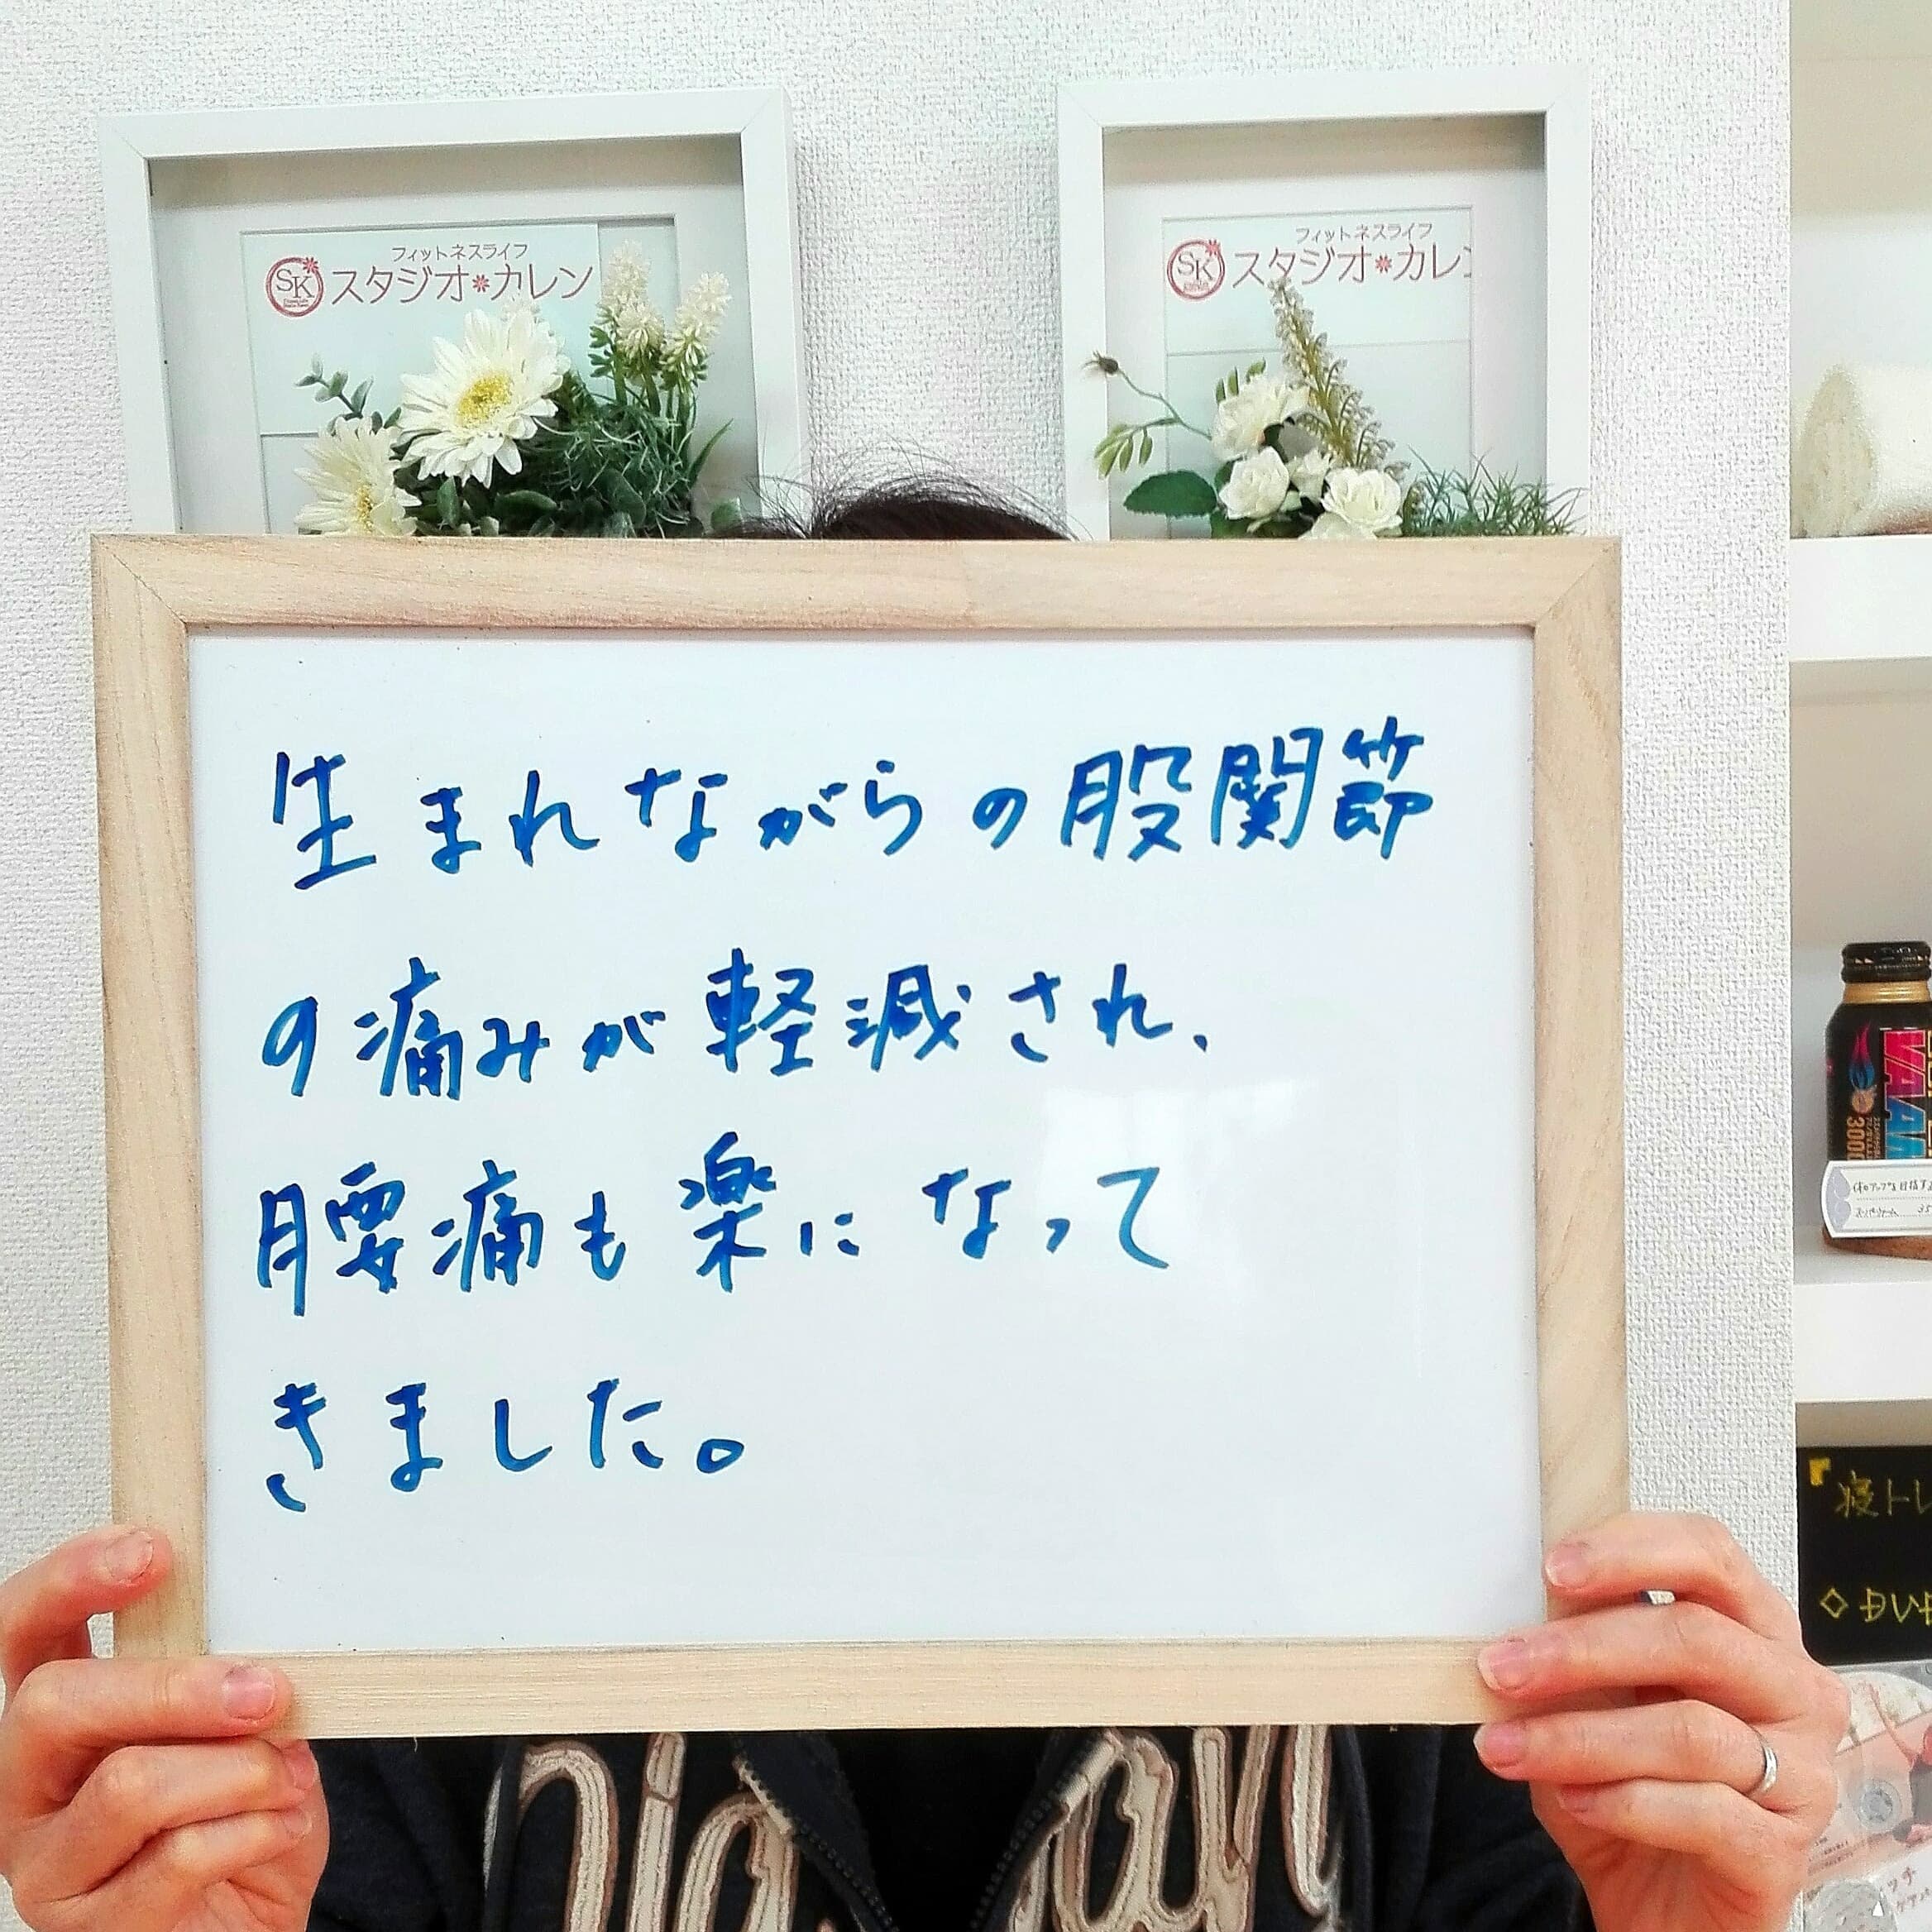 フィットネスライフ
SK スタジオ*カレン
フィットネスライフ
SK スタジオ*カレン
生まれながらの股関節
の痛みが軽減され、
腰痛も楽になって
きました。
VAAM
3000
寝トレ